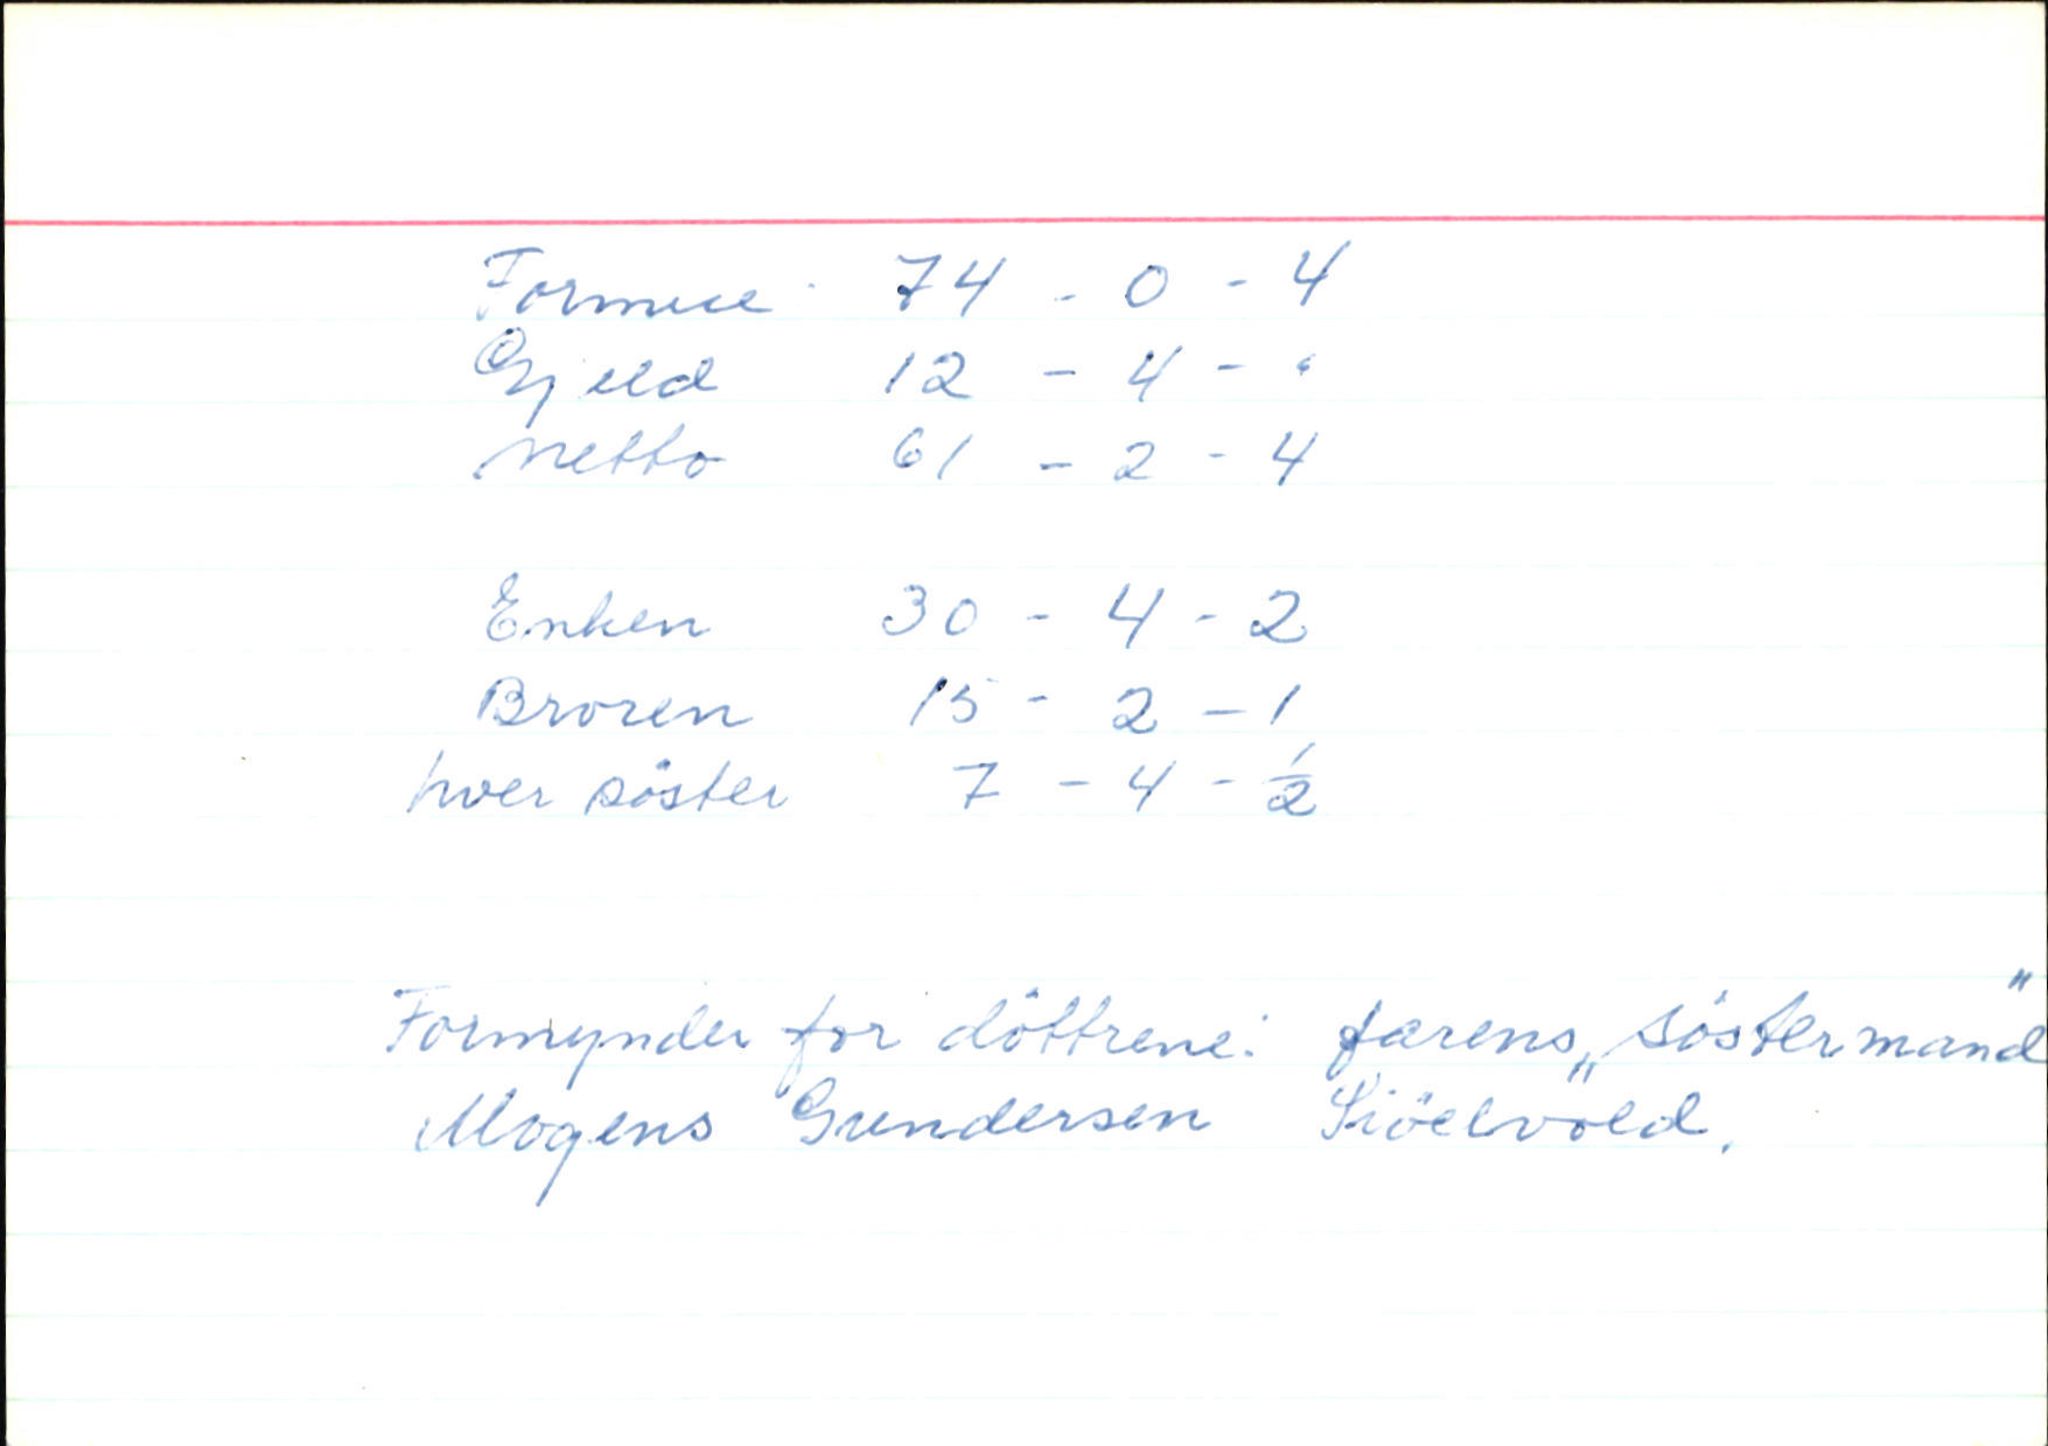 Formue 74 - 0 - 4
Gjeld 12 - 4 - "
Netto 61 - 2 - 4
Enken 30 - 4 - 2
Broren 15 - 2 - 1
hver söster 7 - 4 - 1/2
Formynder for döttrene: farens „söstermand"
Mogens Gundersen Siöelvold.